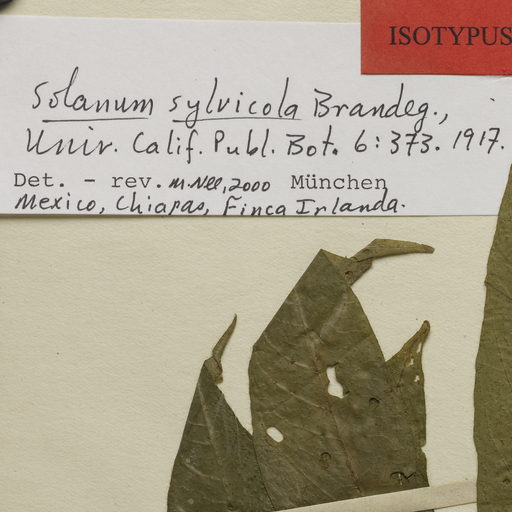 ISOTYPUS
Solanum sylvicola Brandeg.,
Univ. Calif. Publ. Bot. 6: 373. 1917.
Det. - rev. M. Nee, 2000 München
Mexico, Chiapas, Finca Irlanda.